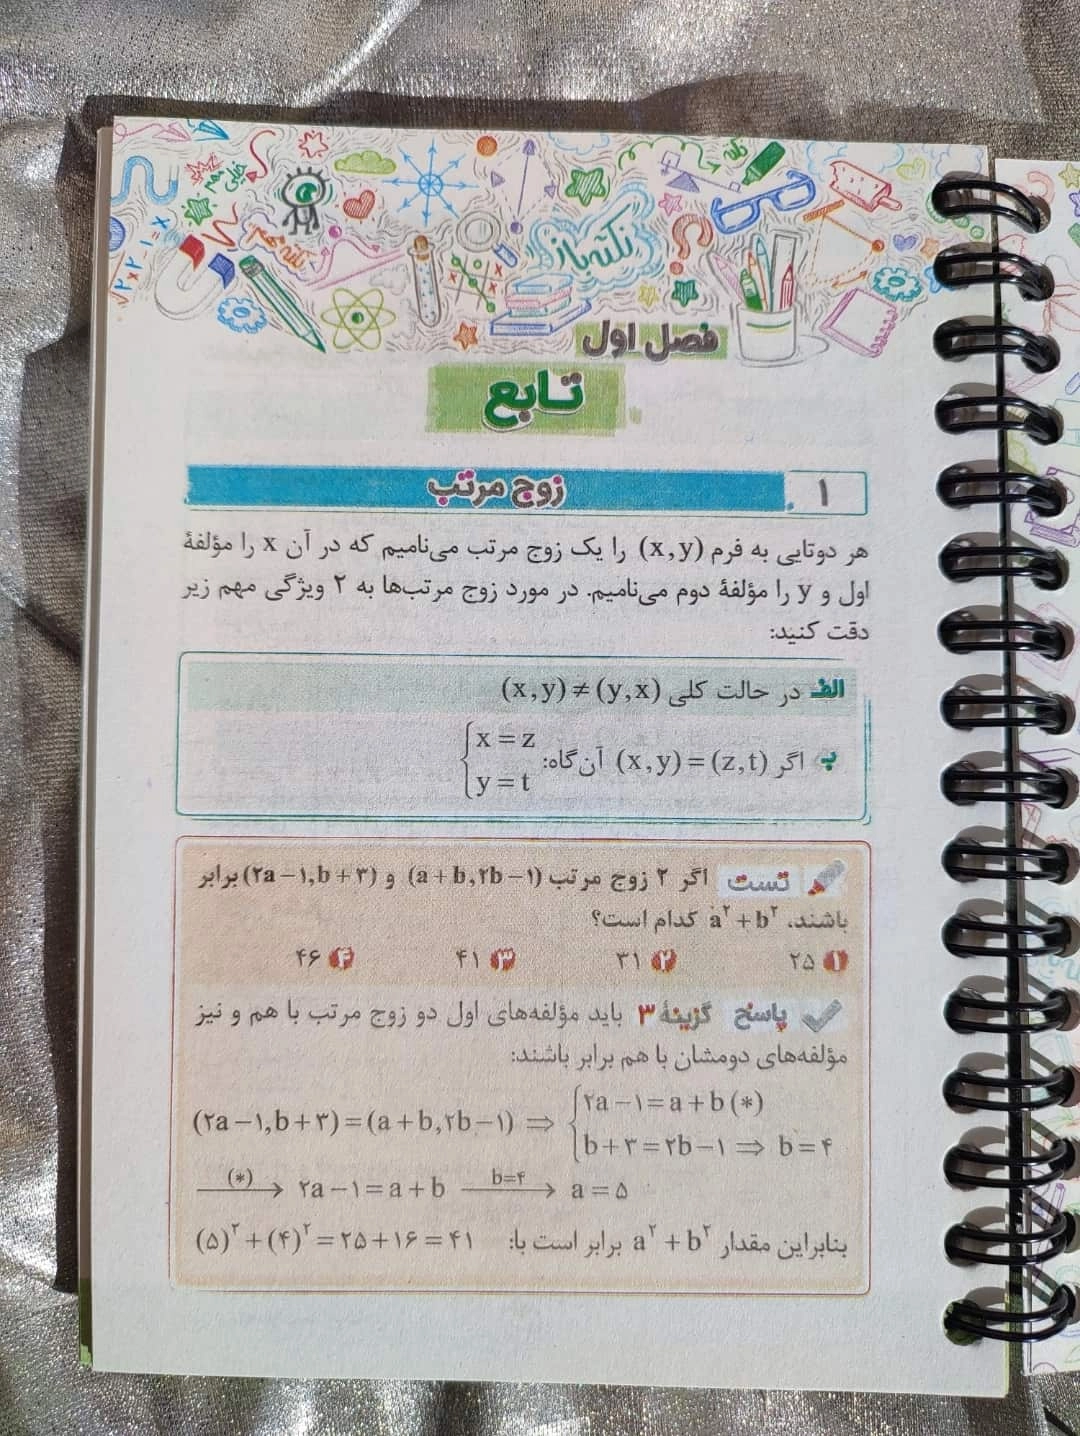 نکته‌بازی
فصل اول
تابع
۱ زوج مرتب
هر دوتایی به فرم (x,y) را یک زوج مرتب می‌نامیم که در آن x را مؤلفهٔ
اول و y را مؤلفهٔ دوم می‌نامیم. در مورد زوج مرتب‌ها به ۲ ویژگی مهم زیر
دقت کنید:
الف در حالت کلی (x,y)≠(y,x)
ب اگر (x,y)=(z,t) آن‌گاه: {x=z
y=t
تست اگر ۲ زوج مرتب (a+b,۲b−۱) و (۲a−۱,b+۳) برابر
باشند، a²+b² کدام است؟
۱ ۲۵ ۲ ۳۱ ۳ ۴۱ ۴ ۴۶
پاسخ گزینهٔ ۳ باید مؤلفه‌های اول دو زوج مرتب با هم و نیز
مؤلفه‌های دومشان با هم برابر باشند:
(۲a−۱,b+۳)=(a+b,۲b−۱) ⇒ {۲a−۱=a+b(*)
b+۳=۲b−۱ ⇒ b=۴
(*)→ ۲a−۱=a+b b=۴→ a=۵
بنابراین مقدار a²+b² برابر است با: (۵)²+(۴)²=۲۵+۱۶=۴۱